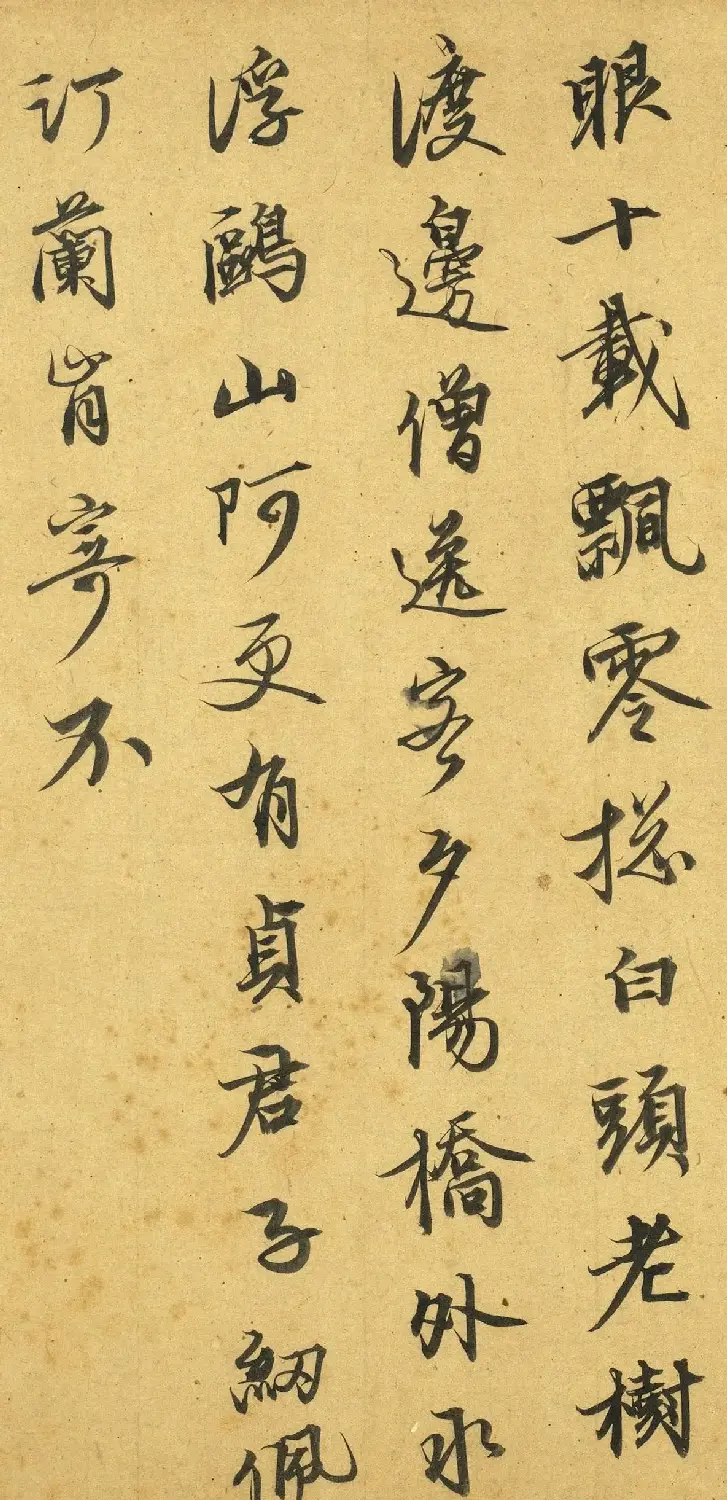 眼十載飄零捴白頭老樹
渡邊僧送客夕陽橋外水
浮鷗山阿更有貞君子紉佩
汀蘭肯寄不